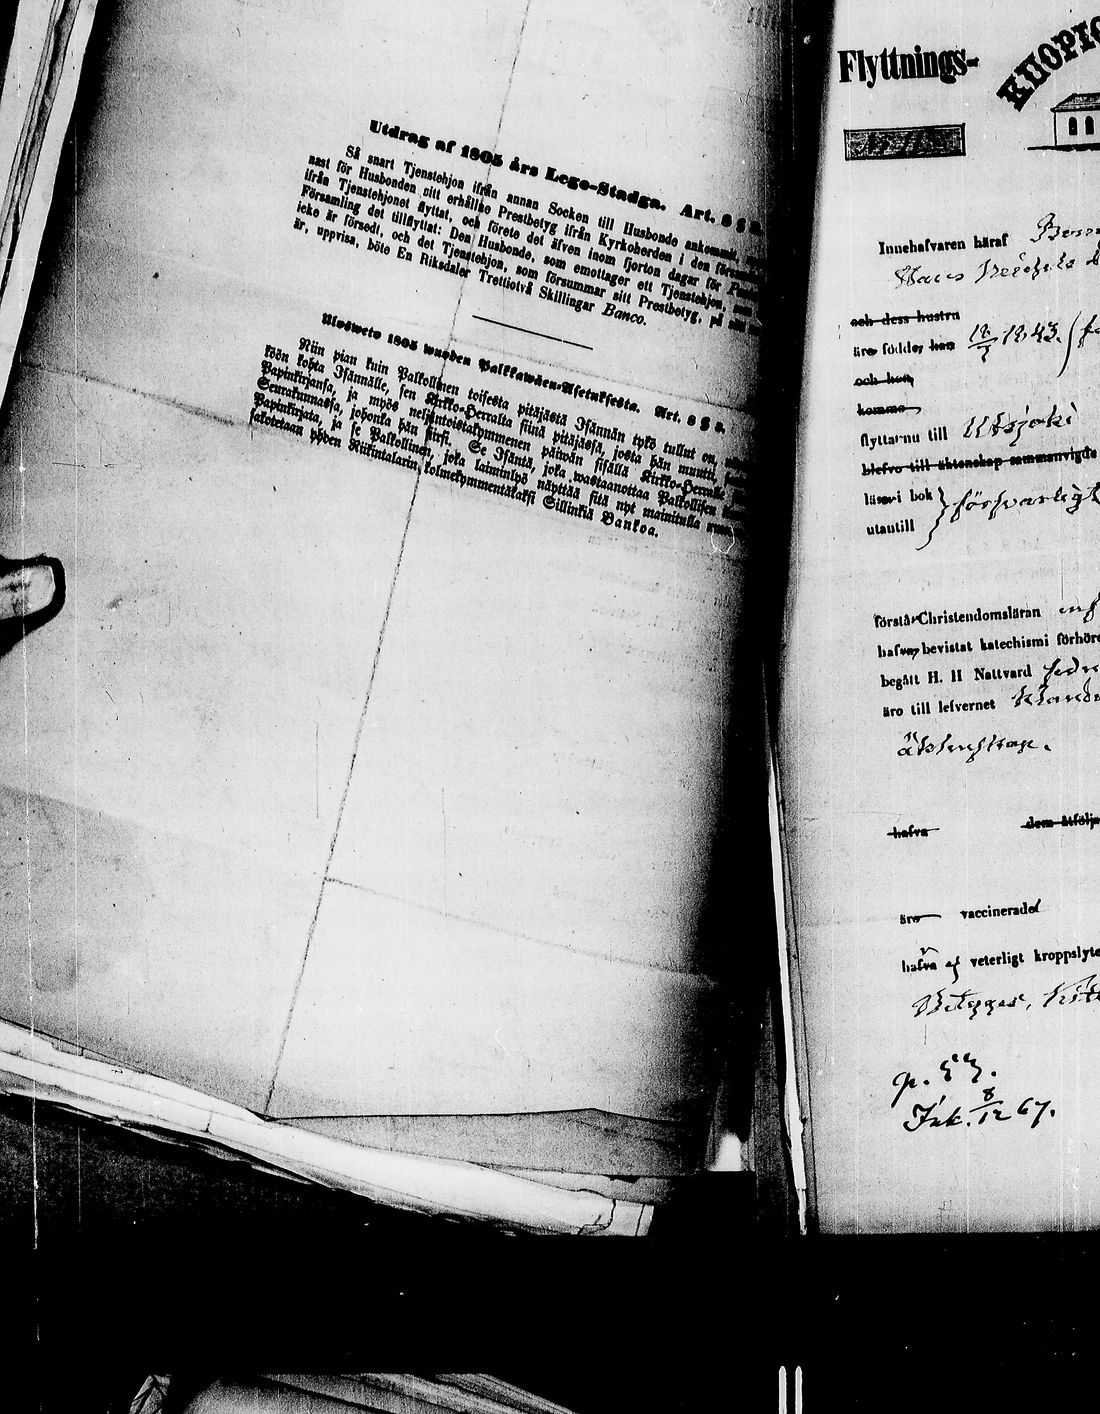 Utdrag af 1805 års Lego-Stadga. Art. 8 §
Så snart Tjenstehjon ifrån annan Socken till Husbonde ankommit,
nast för Husbonden sitt erhållne Prestbetyg ifrån Kyrkoherden i den
ifrån Tjenstehjonet flyttat, och förete det äfven inom fjorton dagar för
Församling det tillflyttat: Den Husbonde, som emottager ett Tjenstehjon,
icke är försedt, och det Tjenstehjon, som försummar sitt Prestbetyg, på
är, uppvisa, böte En Riksdaler Trettiotvå Skillingar Banco.
Ulosweto 1805 wuoden Palkkawäen-Asetuksesta. Art. 8 §
Niin pian kuin Palkollinen toisesta pitäjästä Isännän tykö tullut on,
köön kohta Isännälle, sen Kirkko-Herralta siinä pitäjässä, josta hän muutti,
Papinkirjansa, ja myös neljäntoistakymmenen päiwän sisällä Kirkko-Herralle
Seurakunnassa, johonka hän siirsi. Se Isäntä, joka wastaanottaa Palkollisen
Papinkirjata, ja se Palkollinen, joka laiminlyö näyttää sitä nyt mainitulla
sakotetaan yhden Riikintalarin kolmekymmentäkaksi Sillinkiä Bankoa.
Flyttnings-
KUOPIO
Innehafvaren häraf
och dess hustru
äro födde, han 18/7 1843.
och hon
komme
flyttar nu till Utsjoki
blefvo till äktenskap sammanvigde
läser i bok } försvarligt
utantill
förstår Christendomsläran
hafva bevistat katechismi
begått H. H Nattvard
äro till lefvernet
äktenskap.
hafva dem åtfölja
äro vaccinerade
hafva ej veterligt kroppslyte
Betygar,
p. 53.
Ink. 8/12 67.